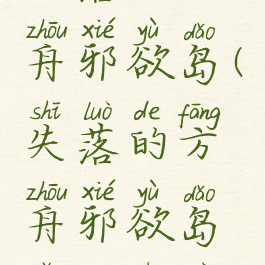 zhōu xié yù dǎo
舟邪欲岛(
shī luò de fāng
失落的方
zhōu xié yù dǎo
舟邪欲岛